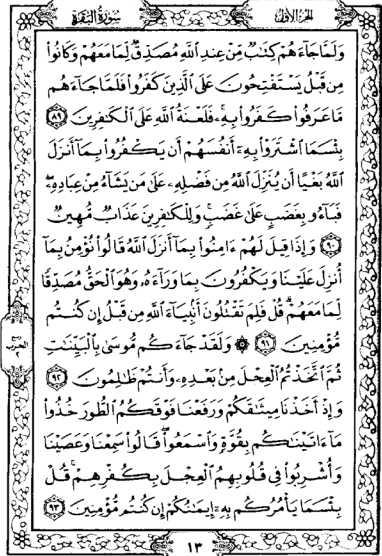 الجزء الأول
سورة البقرة
وَلَمَّا جَآءَهُمْ كِتَٰبٌ مِّنْ عِندِ ٱللَّهِ مُصَدِّقٌ لِّمَا مَعَهُمْ وَكَانُوا۟
مِن قَبْلُ يَسْتَفْتِحُونَ عَلَى ٱلَّذِينَ كَفَرُوا۟ فَلَمَّا جَآءَهُم
مَّا عَرَفُوا۟ كَفَرُوا۟ بِهِۦ ۚ فَلَعْنَةُ ٱللَّهِ عَلَى ٱلْكَٰفِرِينَ ٨٩
بِئْسَمَا ٱشْتَرَوْا۟ بِهِۦٓ أَنفُسَهُمْ أَن يَكْفُرُوا۟ بِمَآ أَنزَلَ
ٱللَّهُ بَغْيًا أَن يُنَزِّلَ ٱللَّهُ مِن فَضْلِهِۦ عَلَىٰ مَن يَشَآءُ مِنْ عِبَادِهِۦ ۖ
فَبَآءُو بِغَضَبٍ عَلَىٰ غَضَبٍ ۚ وَلِلْكَٰفِرِينَ عَذَابٌ مُّهِينٌ
٩٠ وَإِذَا قِيلَ لَهُمْ ءَامِنُوا۟ بِمَآ أَنزَلَ ٱللَّهُ قَالُوا۟ نُؤْمِنُ بِمَآ
أُنزِلَ عَلَيْنَا وَيَكْفُرُونَ بِمَا وَرَآءَهُۥ وَهُوَ ٱلْحَقُّ مُصَدِّقًا
لِّمَا مَعَهُمْ ۗ قُلْ فَلِمَ تَقْتُلُونَ أَنۢبِيَآءَ ٱللَّهِ مِن قَبْلُ إِن كُنتُم
مُّؤْمِنِينَ ٩١ ۞ وَلَقَدْ جَآءَكُم مُّوسَىٰ بِٱلْبَيِّنَٰتِ
ثُمَّ ٱتَّخَذْتُمُ ٱلْعِجْلَ مِنۢ بَعْدِهِۦ وَأَنتُمْ ظَٰلِمُونَ ٩٢
وَإِذْ أَخَذْنَا مِيثَٰقَكُمْ وَرَفَعْنَا فَوْقَكُمُ ٱلطُّورَ خُذُوا۟
مَآ ءَاتَيْنَٰكُم بِقُوَّةٍ وَٱسْمَعُوا۟ ۖ قَالُوا۟ سَمِعْنَا وَعَصَيْنَا
وَأُشْرِبُوا۟ فِى قُلُوبِهِمُ ٱلْعِجْلَ بِكُفْرِهِمْ ۚ قُلْ
بِئْسَمَا يَأْمُرُكُم بِهِۦٓ إِيمَٰنُكُمْ إِن كُنتُم مُّؤْمِنِينَ ٩٣
١٣